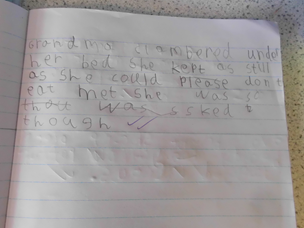 Grandma clambered under
her bed she kept as still
as she could please don't
eat me! she was
that was asked
though